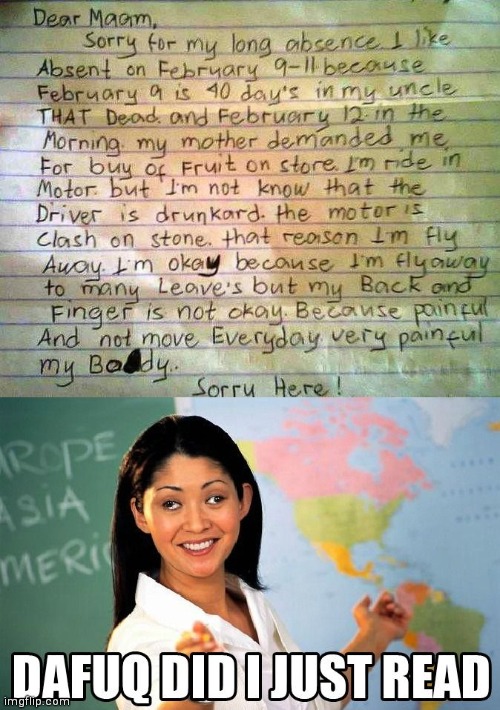 Dear Maam,
Sorry for my long absence I like
Absent on February 9-11 because
February 9 is 40 day's in my uncle
THAT Dead. and February 12 in the
Morning. my mother demanded me
For buy of Fruit on store. I'm ride in
Motor. but I'm not know that the
Driver is drunkard. the motor is
Clash on stone. that reason I'm fly
Away. I'm okay because I'm flyaway
to many Leave's but my Back and
Finger is not okay. Because painful
And not move Everyday very painful
my Body..
Sorry Here!
ROPE
ASIA
MERIC
DAFUQ DID I JUST READ
imgflip.com